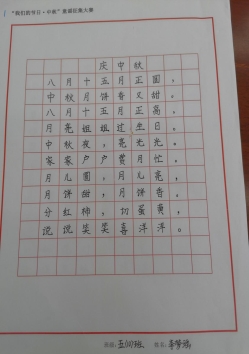 “我们的节日·中秋”童谣征集大赛
庆中秋
八月十五月正圆，
中秋月饼香又甜。
八月十五月正高，
月亮姐姐过生日。
中秋夜，亮光光。
家家户户赏月忙，
月儿圆，月儿亮，
月饼甜，月饼香。
分红柿，切蛋黄，
说说笑笑喜洋洋。
班级：五(1)班 姓名：